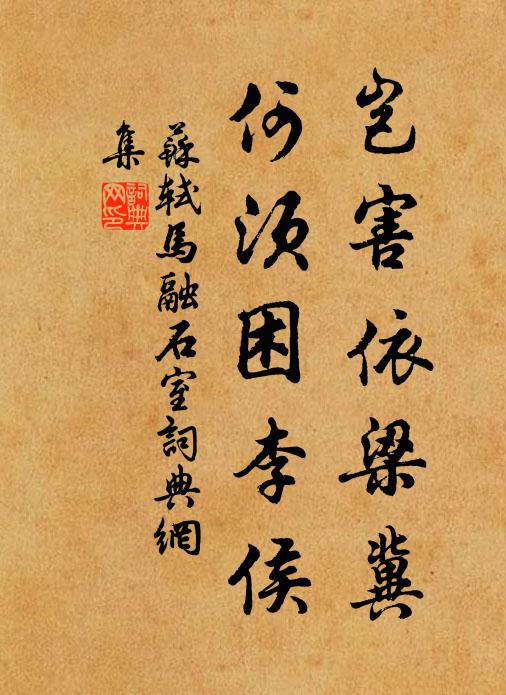 岂害依梁冀
何须困李侯
蘇軾馬融石室詞典網
集
詞典
网印